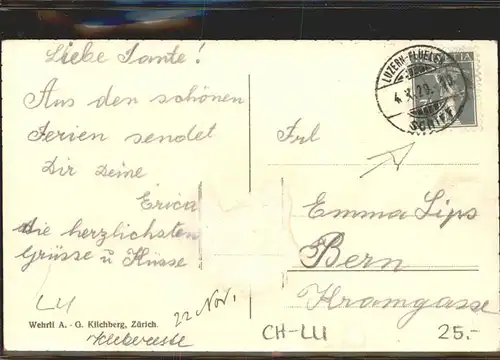 Liebe Tante!
Aus den schönen
Ferien sendet
Dir Deine
Erica
die herzlichsten
Grüsse u Küsse
LU
Wehrli A.-G. Kilchberg, Zürich.
22 Nov.
Klebereste
LUZERN-FLUELEN
SCHIFF
Frl
Emma Lips
Bern
Kramgasse
CH-LU
25.-